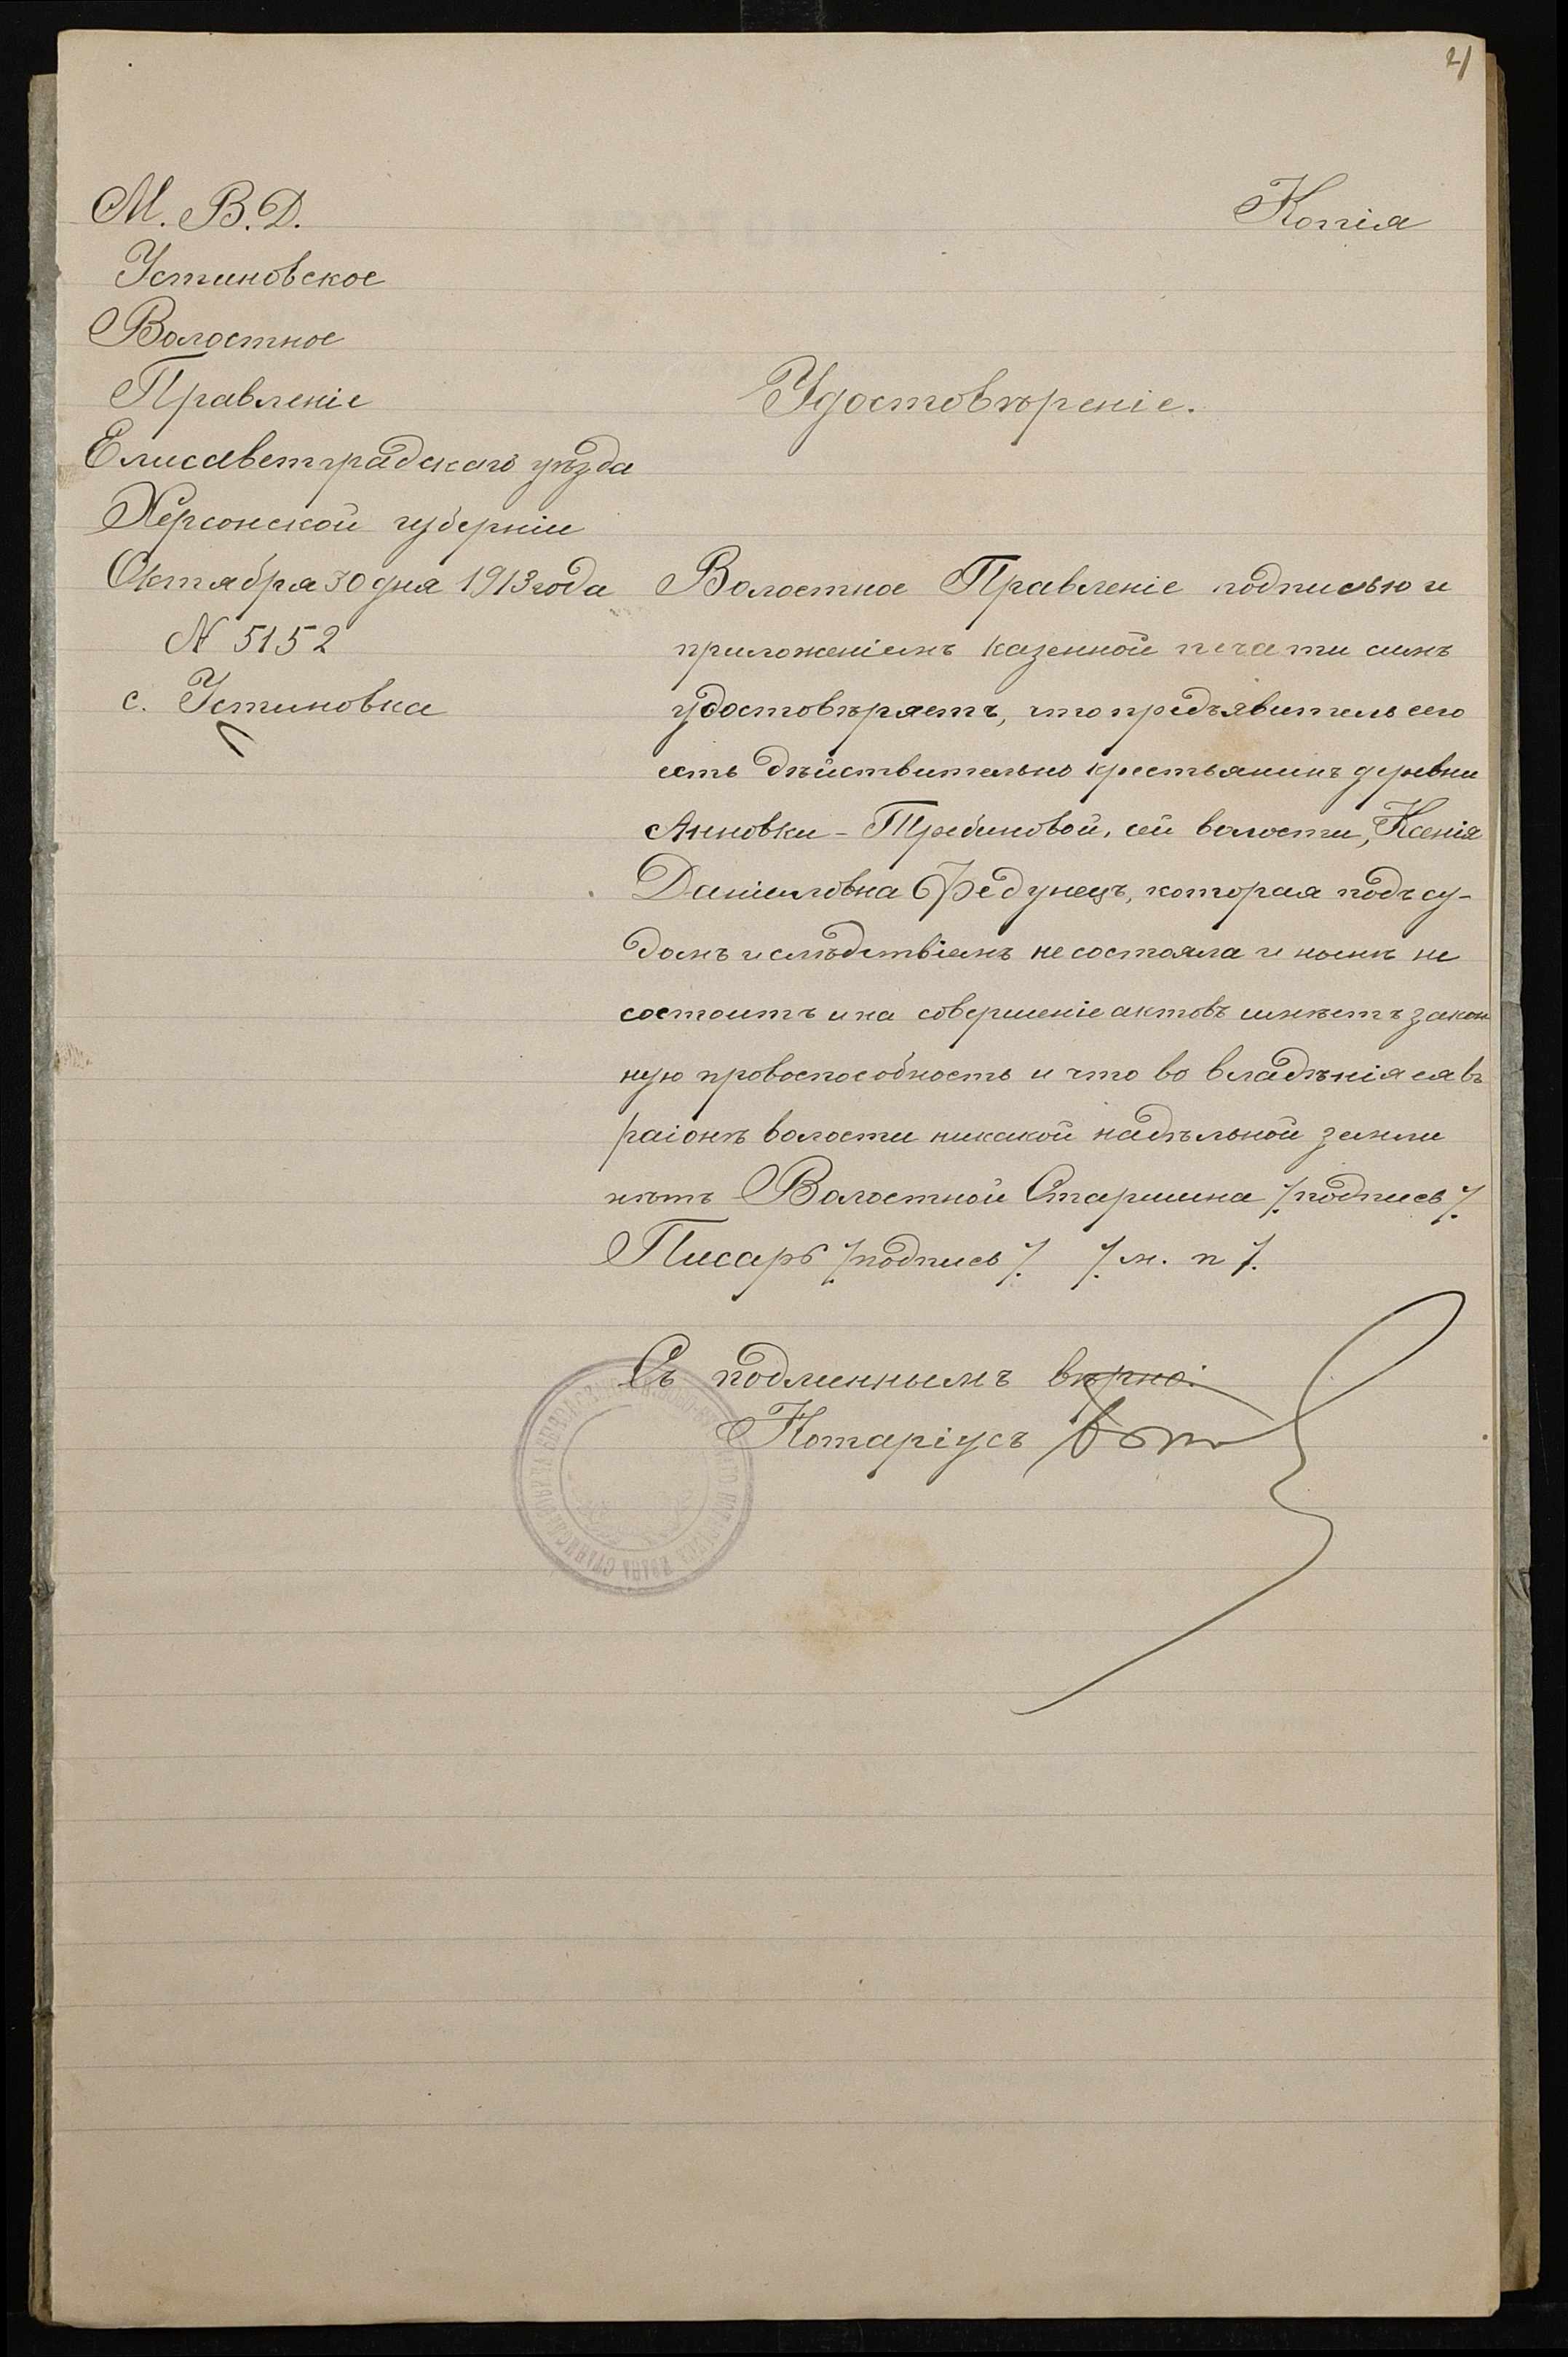 21
М. В. Д.
Устиновское
Волостное
Правленіе
Елисаветградскаго уѣзда
Херсонской губерніи
Октября 30 дня 1913 года
№ 5152
с. Устиновка
Копія
Удостовѣреніе.
Волостное Правленіе подписью и
приложеніемъ казенной печати симъ
удостовѣряетъ, что предъявитель сего
есть дѣйствительно крестьянинъ деревни
Анновки - Требиновой, сей волости, Ксенія
Даніиловна Федунецъ, которая подъ су-
домъ и слѣдствіемъ не состояла и нынѣ не
состоитъ и на совершеніе актовъ имѣетъ закон
ную провоспособность и что во владѣнія ея въ
раіонѣ волости никакой надѣльной земли
нѣтъ Волостной Старшина /подпись/
Писарь /подпись/ /м. п/.
Съ подлиннымъ вѣрно:
Нотаріусъ